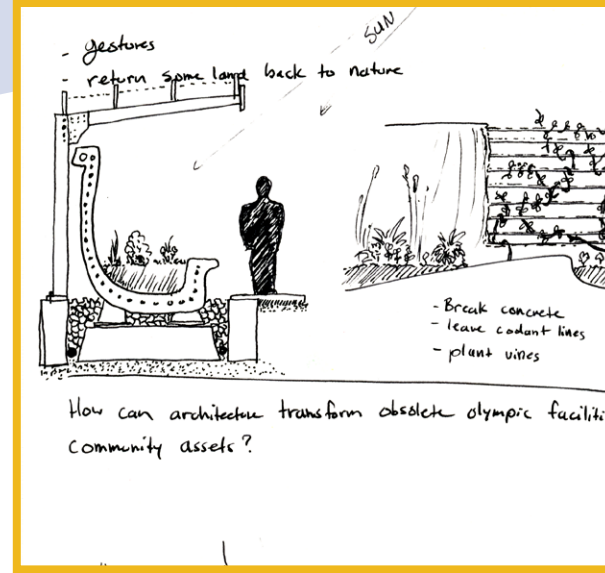 - gestures
- return some land back to nature
SUN
- Break concrete
- leave codant lines
- plant vines
How can architecture transform obsolete olympic faciliti
community assets?